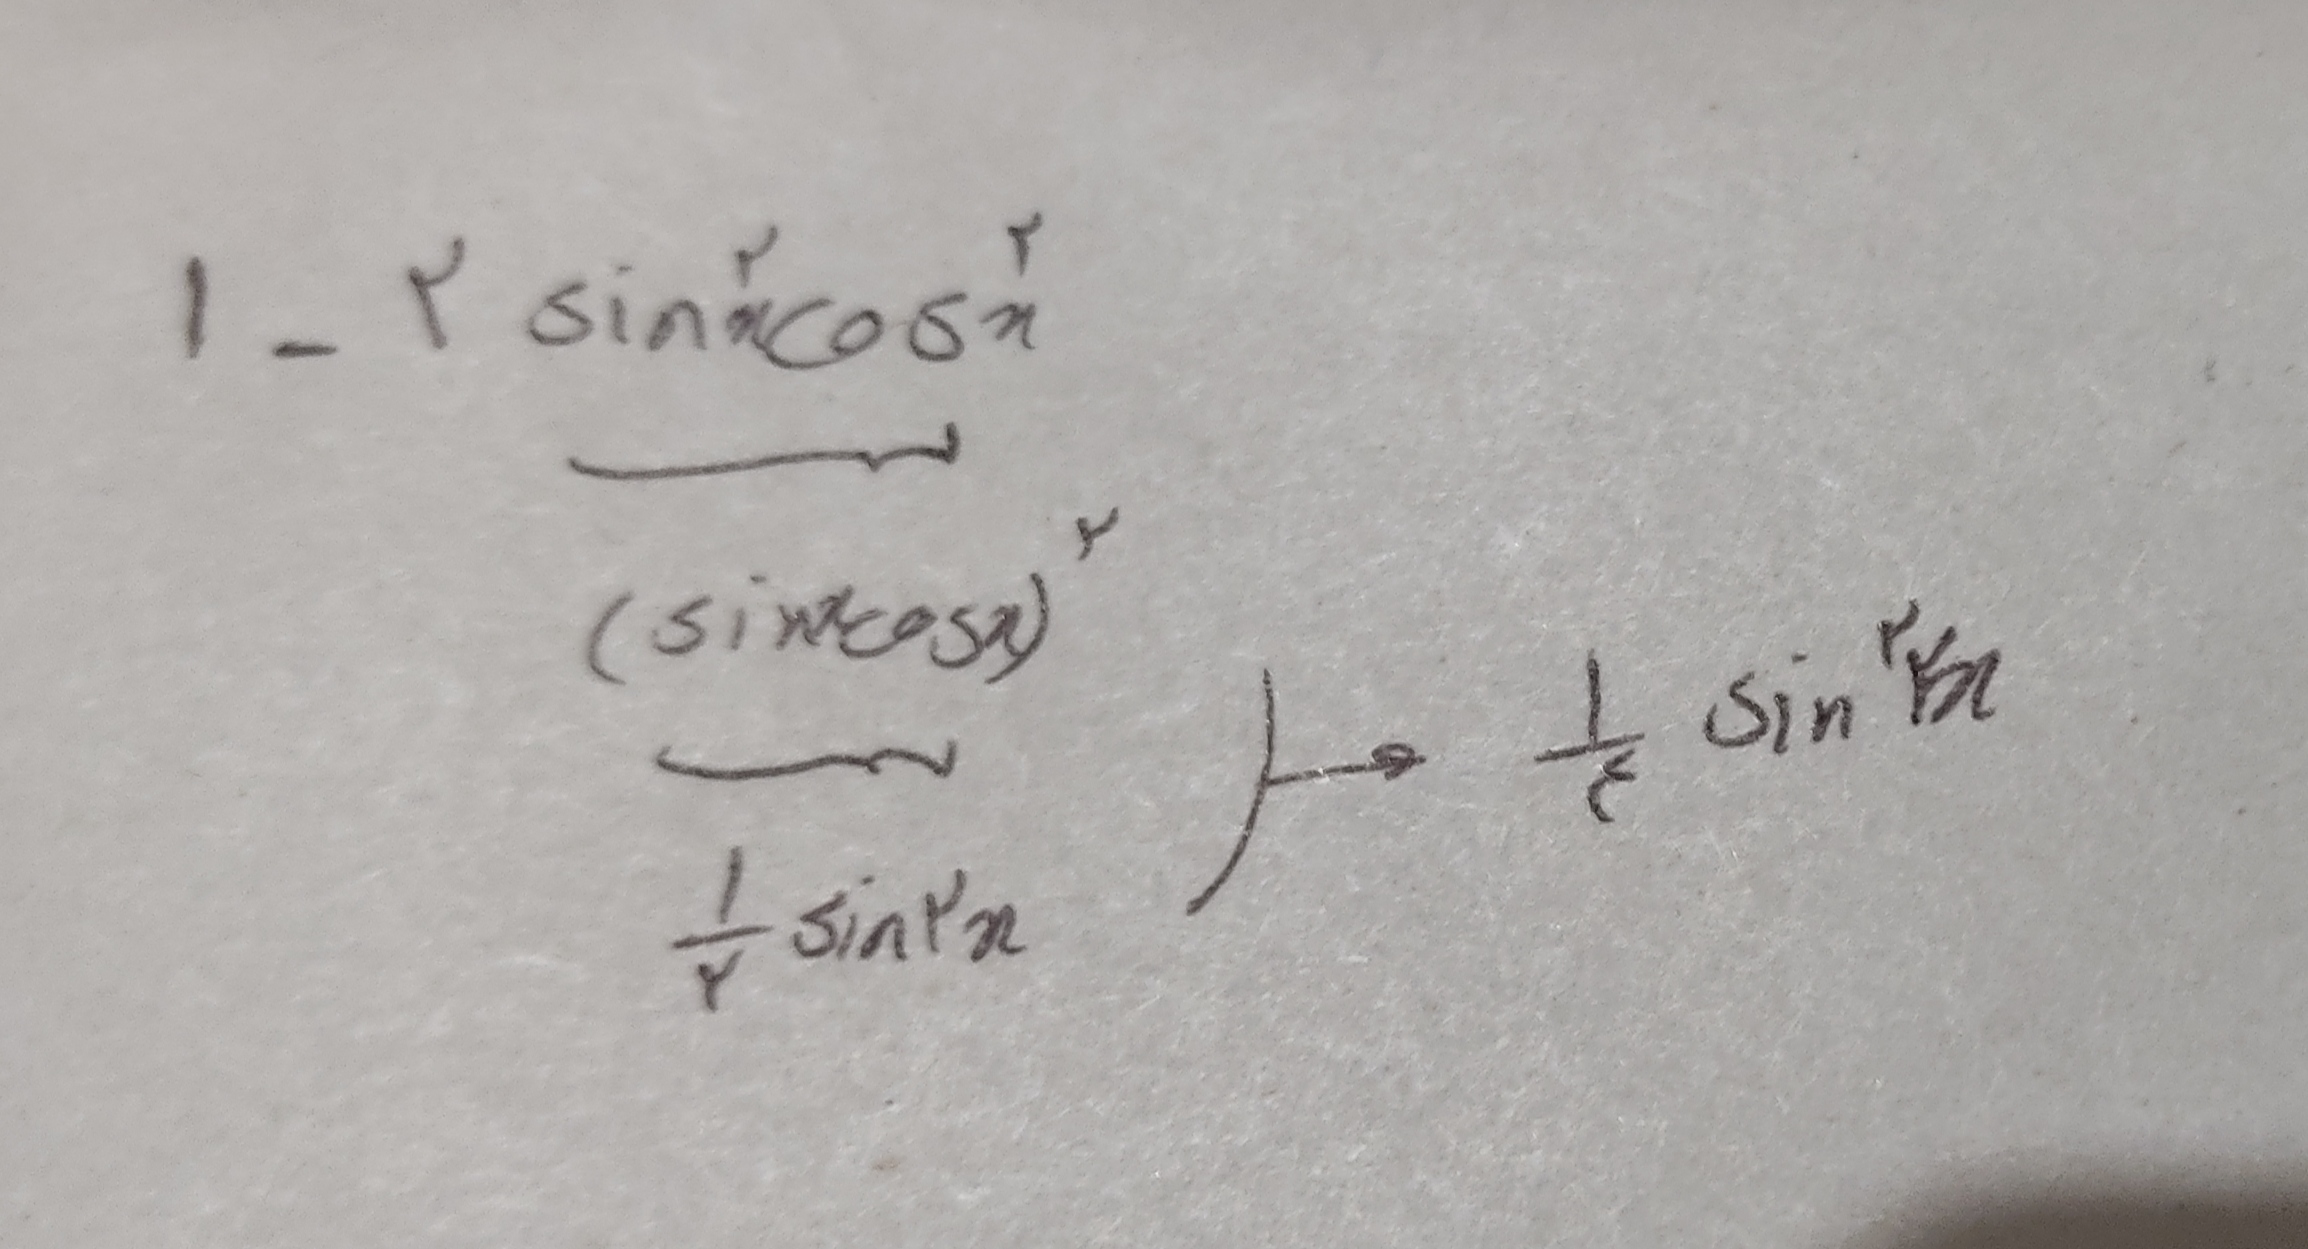 ۱ - ۲ sin²x cos²x
(sinx cosx)²
۱/۴ sin²۲x
۱/۲ sin۲x